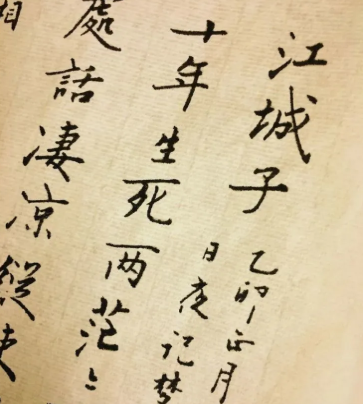 江城子 乙卯正月
日夜记梦
十年生死两茫々
處話凄凉縱使
相